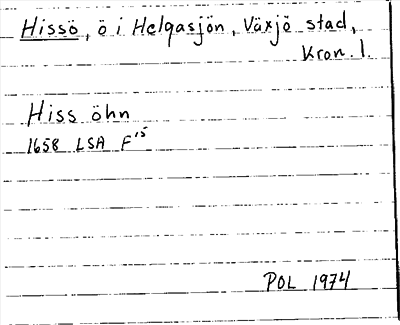 Hissö, ö i Helgasjön, Växjö stad,
Kron. l.
Hiss öhn
1658 LSA F¹⁵
POL 1974